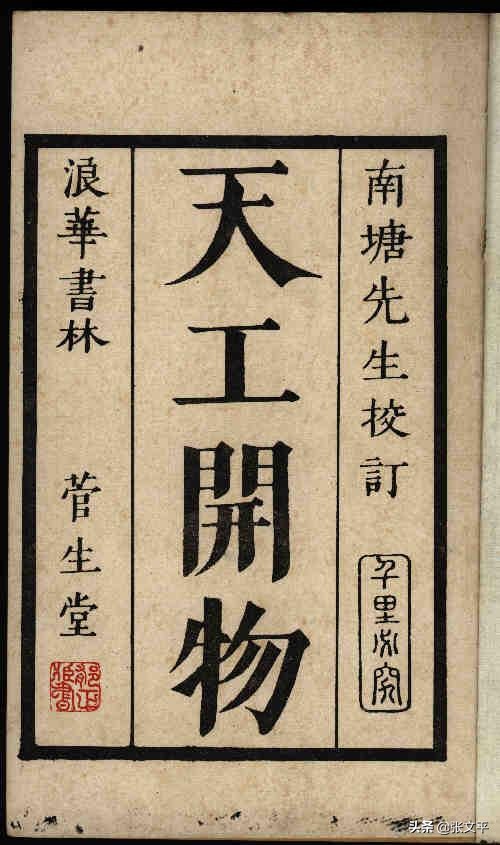 南塘先生校訂
千里必究
天工開物
浪華書林 菅生堂
头条 @张文平